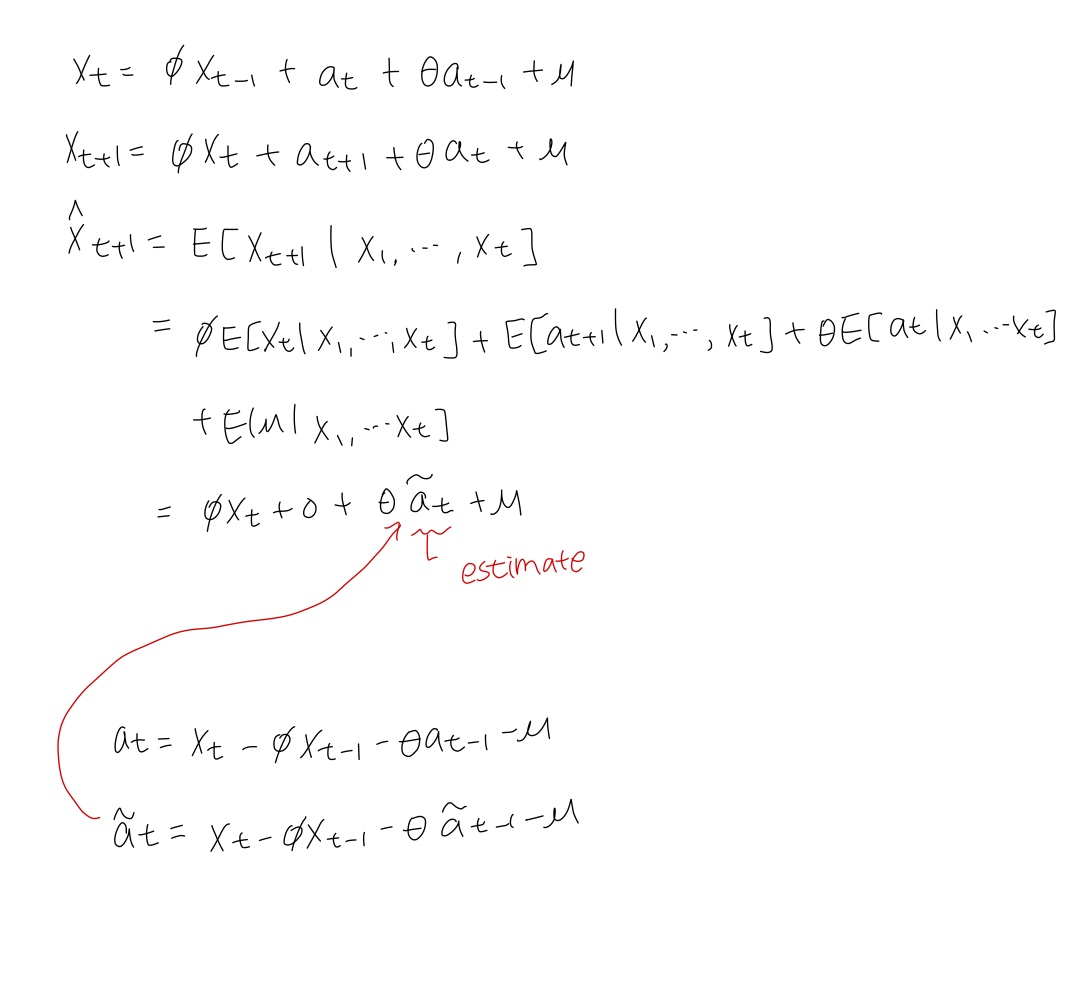 Xt = ϕXt-1 + at + θat-1 + μ
Xt+1 = ϕXt + at+1 + θat + μ
X̂t+1 = E[Xt+1 | X1, ..., Xt]
= ϕE[Xt | X1, ..., Xt] + E[at+1 | X1, ..., Xt] + θE[at | X1 ... Xt]
+ E[μ | X1, ... Xt]
= ϕXt + 0 + θãt + μ
estimate
at = Xt - ϕXt-1 - θat-1 - μ
ãt = Xt - ϕXt-1 - θãt-1 - μ